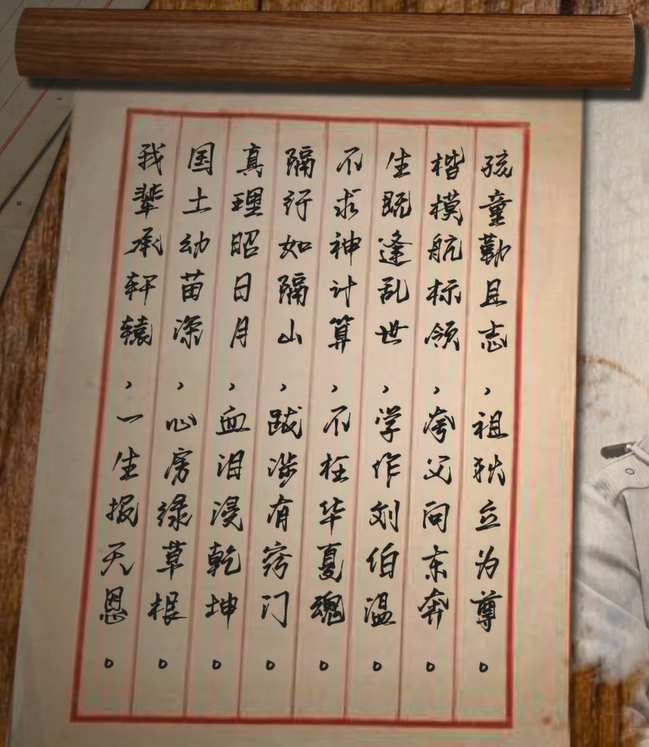 孩童勤且志，祖狄立为尊。
楷模航标领，夸父向东奔。
生既逢乱世，学作刘伯温。
不求神计算，不枉华夏魂。
隔行如隔山，跋涉有窍门。
真理昭日月，血泪浸乾坤。
国土幼苗深，心房绿草根。
我辈承轩辕，一生报天恩。